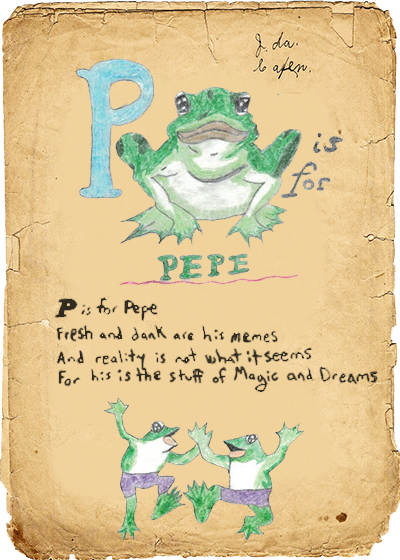 P
is
for
PEPE
P is for Pepe
Fresh and dank are his memes
And reality is not what it seems
For his is the stuff of Magic and Dreams